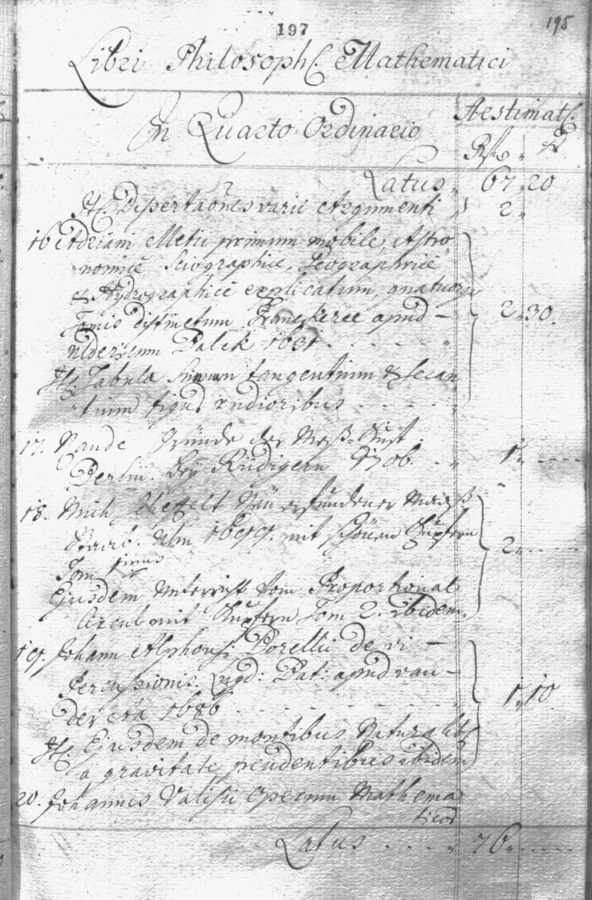 197
195
Libri Philosoph. Mathematici
In Quarto Ordinario
Aestimat.
Latus 67 20
It. Dissertaones varii Argumenti 2
16 Adriani Metii primum mobile, Astro
nomicè Sciographicè, Geographicè
& Hydrographicè explicatum, quatuor
Tomis distinctum Franekerae apud 2 30
Balck 1631
It. Tabula Sinuum tangentium & Secan
tium
17. Naudé Gründe der Meß-Kunst
Berlin. bey Rüdigern 1706. 1
18. Mich Scheffelt Neu erfundener Maaß
Staab. Ulm 1699. mit schönen Kupfern 2
Tom primus
Ejusdem Unterricht vom Proportional
Circul mit Kupfern Tom 2. ibidem
19. Johann Alphonsi Borelli de vi
Percussionis. Lugd: Bat: apud van-
der Aa 1686 1 10
It. Ejusdem de montibus Naturalib
a gravitate pendentibus ibidem
20. Johannis Valisii Operum Mathema
ticor
Latus 76